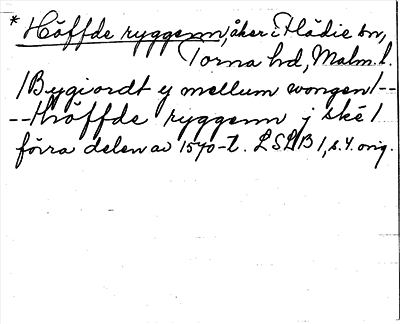 * Höffde ryggenn, åker i Flädie sn,
Torna hd, Malm. l.
/Bygiordt ey mellum wongen/--
--Höffde ryggenn j ské/
förra delen av 1570-t. LSLB 1, s. 4. orig.